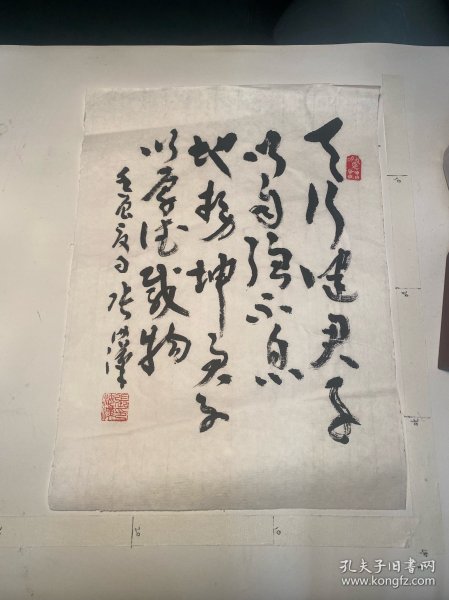 天行健君子
以自强不息
地势坤君子
以厚德载物
壬辰夏月 张
孔夫子旧书网
www.kongfz.com